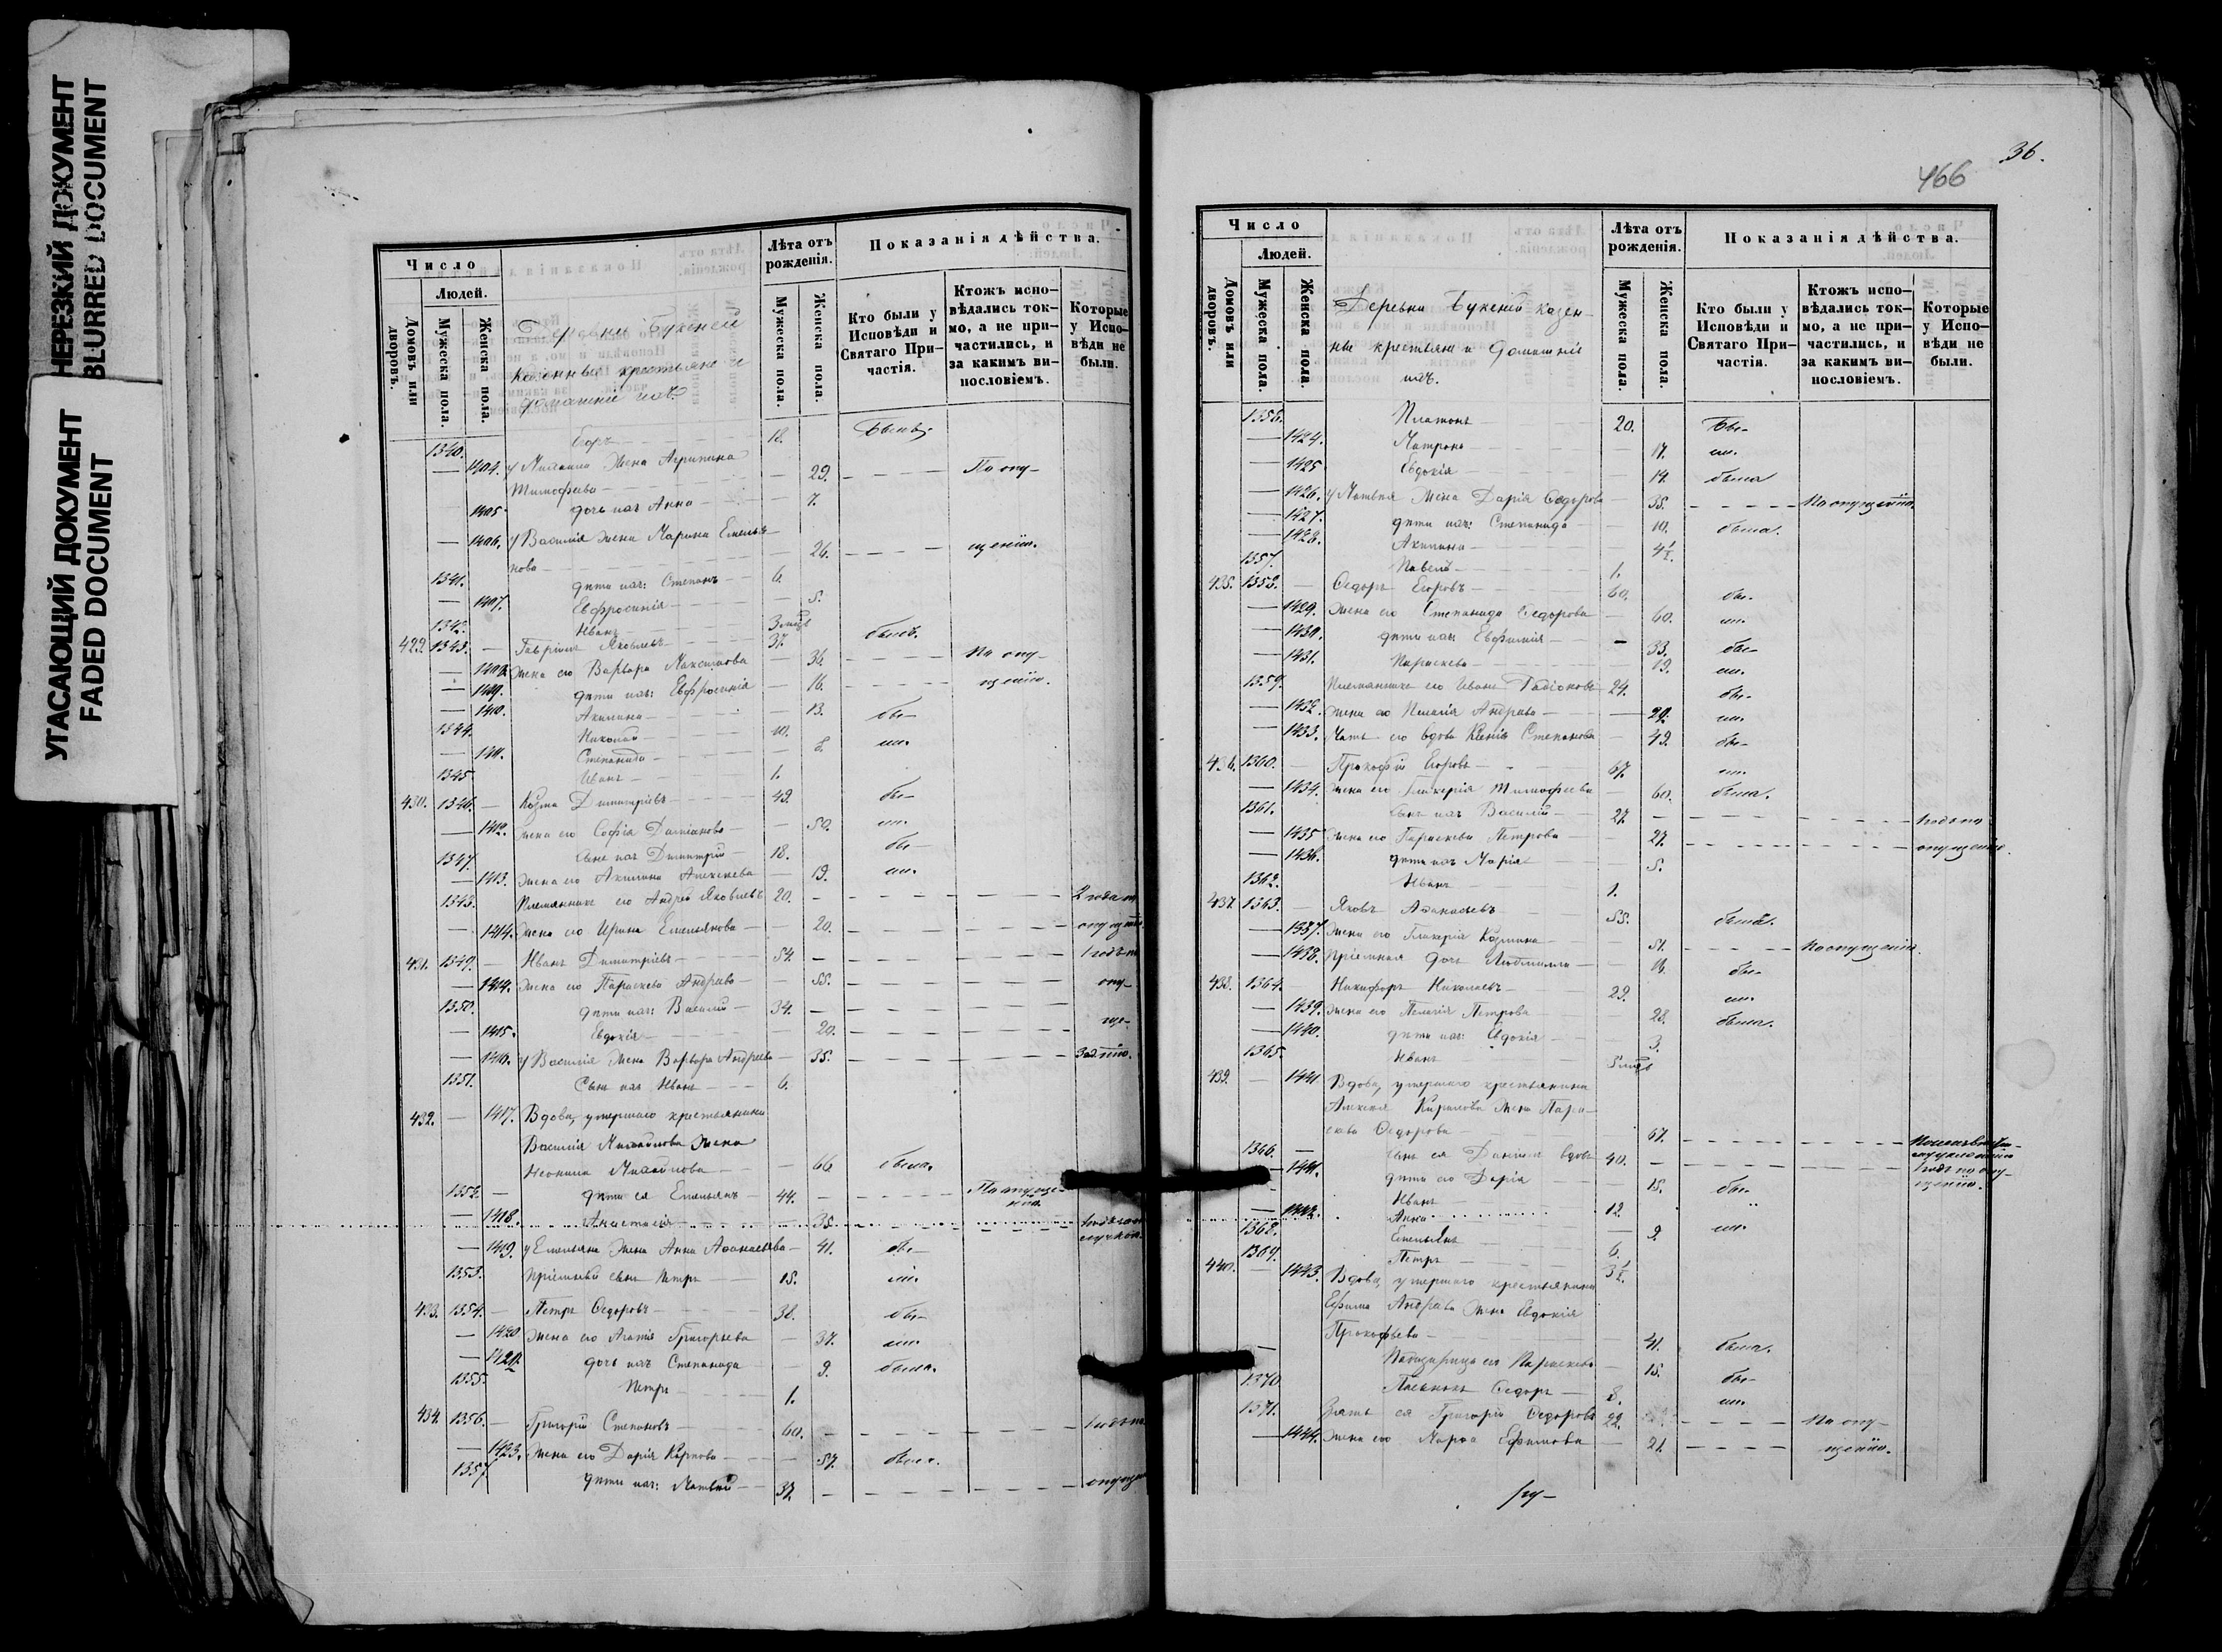 НЕРЕЗКИЙ ДОКУМЕНТ
BLURRED DOCUMENT
УГАСАЮЩИЙ ДОКУМЕНТ
FADED DOCUMENT
Число
Людей.
Домовъ или дворовъ.
Мужеска пола.
Женска пола.
Деревни Букеней
казенные крестьяне и
домашніе ихъ.
Лѣта отъ рожденія.
Мужеска пола.
Женска пола.
Показанія дѣйства.
Кто были у Исповѣди и Святаго Причастія.
Ктожъ исповѣдались токмо, а не причастились, и за какимъ винословіемъ.
Которые у Исповѣди не были.
1340. Егоръ 18. былъ.
1404. у жена Агрипина
Тимофеева 29. По опу-
1405. дочь ихъ Анна 7.
1406. у Василія жена Марина Емелья-
нова 26. щенію.
1341. дѣти ихъ: Степанъ 6.
1407. Евфросинія 5.
1342. Иванъ
429. 1343. Гавріилъ Яковлевъ 37. былъ.
1408. жена его Варвара Максимова 36. По опу-
1409. дѣти ихъ: Евфросинія 16. щенію.
1410. Акилина 13. бы-
1344. Николай 10. ли.
1411. Степанида 8.
1345. Иванъ 1.
430. 1346. Козма Димитріевъ 49. бы-
1412. жена его Софія Даміанова 50. ли.
1347. сынъ ихъ Димитрій 18. бы-
1413. жена его Акилина Алексѣева 19. ли.
1348. Племянникъ его Андрей Яковлевъ 20. 2 года
1414. жена его Ирина Емельянова 20.
431. 1349. Иванъ Димитріевъ 54.
1414. жена его Параскева Андреева 55. опу-
1350. дѣти ихъ: Василій 34. ще-
1415. Евдокія 20.
1416. у Василія жена Варвара Андреева 35.
1351. Сынъ ихъ Иванъ 6.
432. 1417. Вдова, умершаго крестьянина
Василія Михайлова жена
Неонила Михайлова 66. была.
1352. дѣти ея Емельянъ 44. По опуще-
нію.
1418. Анастасія 35.
1419. у Емельяна жена Анна Аѳанасьева 41. бы-
1353. Пріемный сынъ Петръ 15. ли.
433. 1354. Петръ Ѳедоровъ 38. бы-
1420. жена его Агапія Григорьева 37. ли.
1421. дочь ихъ Степанида 9. была.
1355. Петръ 1.
434. 1356. Григорій Степановъ 60.
1423. жена его Дарія Карпова 57. была.
1357. дѣти ихъ: Матвѣй 37.
466
36.
Число
Людей.
Домовъ или дворовъ.
Мужеска пола.
Женска пола.
Деревни Букеній казен-
ные крестьяне и домашніе
ихъ.
Лѣта отъ рожденія.
Мужеска пола.
Женска пола.
Показанія дѣйства.
Кто были у Исповѣди и Святаго Причастія.
Ктожъ исповѣдались токмо, а не причастились, и за какимъ винословіемъ.
Которые у Исповѣди не были.
1356. Платонъ 20. бы-
1424. Матрона 17. ли.
1425. Евдокія 14. была
1426. у Матвѣя жена Дарія Ѳедорова 35. По опущенію.
1427. дѣти ихъ: Степанида 10. была.
1428. Акилина 4½
1357. Павелъ 1.
435. 1358. Ѳедоръ Егоровъ 60. бы-
1429. жена его Степанида Ѳедорова 60. ли.
1430. дѣти ихъ Евфимія 33. бы-
1431. Параскева 19. ли.
1359. Племянникъ его Иванъ 24. бы-
1432. жена его Пелагія Андреева 29. ли.
1433. Мать его вдова Ксенія Степанова 49. бы-
436. 1360. Прокофій Егоровъ 67. ли.
1434. жена его Гликерія Тимофеева 60. была.
1361. сынъ ихъ Василій 27. 1 годъ по
1435. жена его Параскева Петрова 27. опущенію.
1436. дѣти ихъ Марія 5.
1362. Иванъ 1.
437. 1363. Яковъ Аѳанасьевъ 55. былъ.
1437. жена его Гликерія Козмина 51. По опущенію.
1438. Пріемная дочь Людмилла 16. бы-
438. 1364. Никифоръ Николаевъ 29. ли.
1439. жена его Пелагія Петрова 28. была.
1440. дѣти ихъ: Евдокія 3.
1365. Иванъ
439. 1441. Вдова, умершаго крестьянина
Алексія Кирилова жена Пара-
скева Ѳедорова 67.
1366. сынъ ея Даніилъ вдовъ 40. 1 годъ по опу-
1441. дѣти его Дарія 15. бы- щенію.
Иванъ 12.
1442. Анна 9. ли.
1368. Емельянъ 6.
1369. Петръ 3½.
440. 1443. Вдова, умершаго крестьянина
Ефима Андреева жена Евдокія
Прокофьева 41. была.
Падчерица ея Параскева 15. бы-
1370. Пасынокъ Ѳедоръ 8. ли.
1371. Зять ея Григорій Ѳедоровъ 22. По опу-
1444. жена его Марѳа Ефимова 21. щенію.